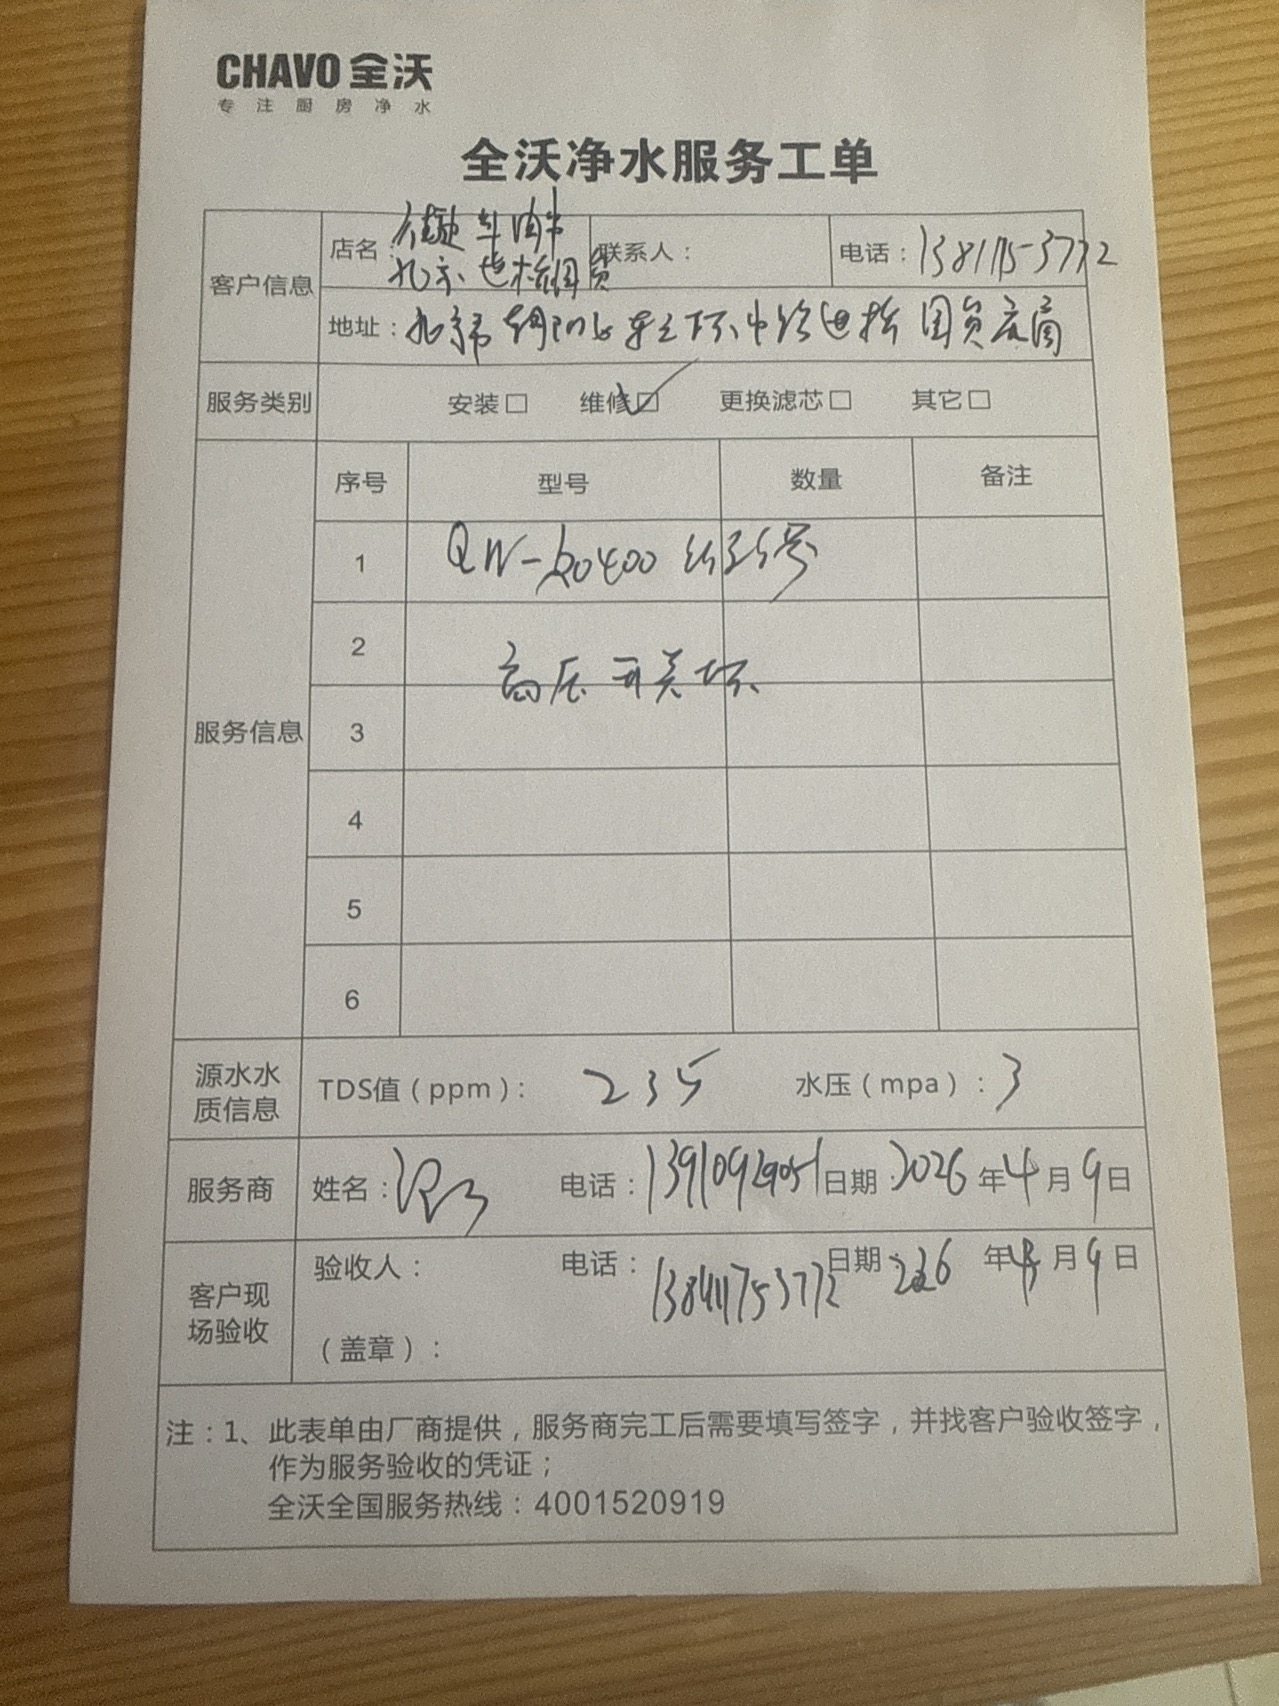 CHAVO 全沃
专注厨房净水
全沃净水服务工单
客户信息
店名：
北京世格国贸
联系人：
电话：13811753772
地址：北京市朝阳区东三环中路世格国贸店
服务类别
安装□ 维修☑ 更换滤芯□ 其它□
服务信息
序号 型号 数量 备注
1 QW-R0400
2
高压开关坏
3
4
5
6
源水水质信息
TDS值（ppm）：235 水压（mpa）：3
服务商
姓名： 电话：13910929051 日期：2026年4月9日
客户现场验收
验收人： 电话：13811753772 日期：2026年4月9日
（盖章）：
注：1、此表单由厂商提供，服务商完工后需要填写签字，并找客户验收签字，
作为服务验收的凭证；
全沃全国服务热线：4001520919